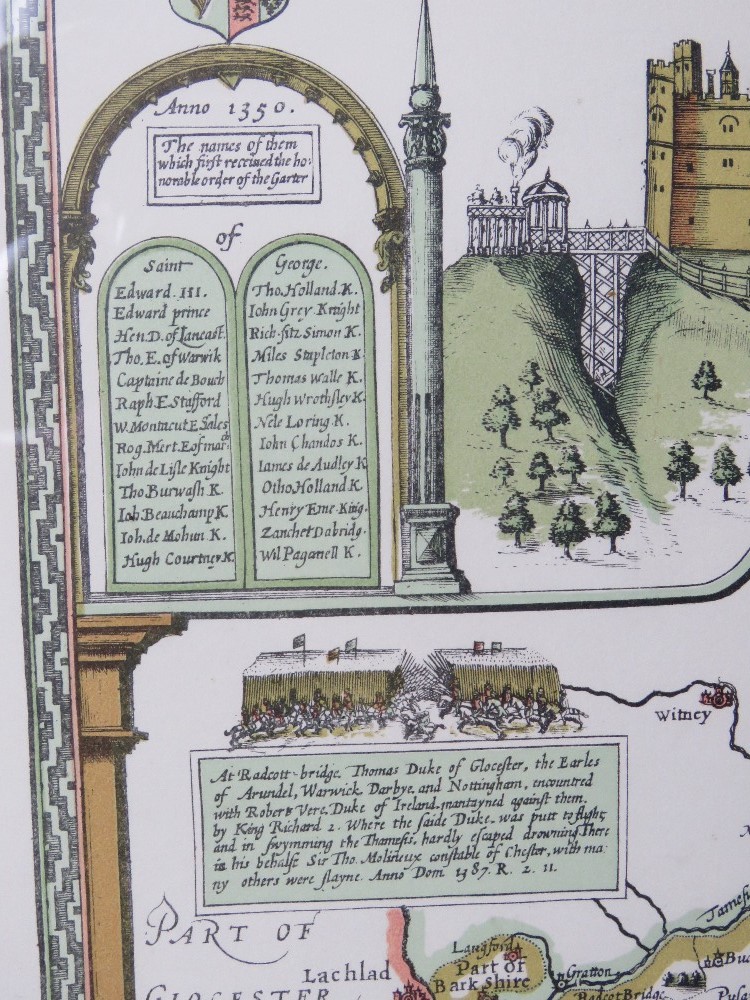 Anno 1350.
The names of them
which first receiued the ho:
norable order of the Garter
of
Saint
Edward III.
Edward prince
Hen. D. of Lancast.
Tho. E. of Warwik
Captaine de Bouch
Raph E. Stafford
W. Montacut E. Sales
Rog. Mert. E of mar:
Iohn de Lisle Knight
Tho. Burwash K.
Ioh. Beauchamp K.
Ioh. de Mohun K.
Hugh Courtney K.
George.
Tho. Holland. K.
Iohn Grey Knight
Rich. fitz Simon K.
Miles Stapleton K.
Thomas Walle K.
Hugh Wrothsley K.
Nele Loring K.
Iohn Chandos K.
Iames de Audley K
Otho Holland K.
Henry Eme King.
Zanchet Dabridg.
Wil Paganell K.
Witney
At Radcott-bridge. Thomas Duke of Glocester, the Earles
of Arundel, Warwick Darbye, and Nottingham, encountred
with Robert Vere, Duke of Ireland, mantayned against them,
by King Richard 2. Where the saide Duke was putt to flight,
and in swymming the Thamesis, hardly escaped drowning. There
in his behalfe Sir Tho. Molineux constable of Chester, with ma:
ny others were slayne. Anno Dom 1387. R. 2. 11.
PART OF
Lachlad
GLOCESTER
Langford
Part of
Bark shire
Gratton
Radcot Bridge